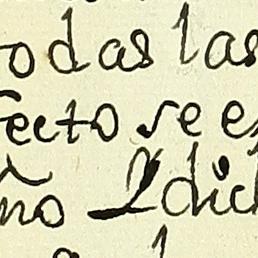 odas las
fecto se es
ño 2 dich